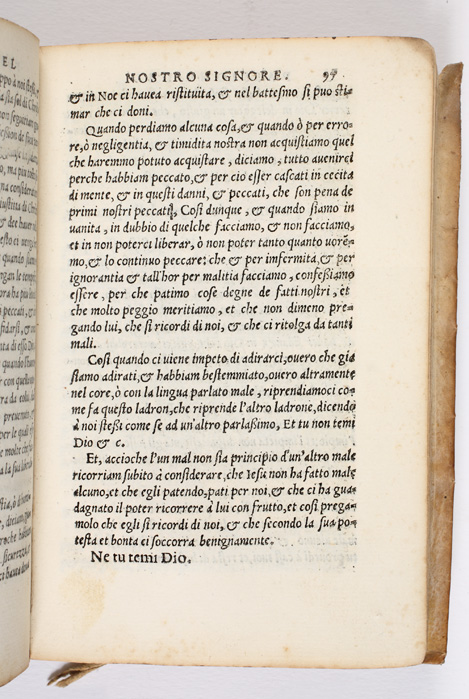 NOSTRO SIGNORE. 97
& in Noe ci havea ristituita, & nel battesmo si puo sti-
mar che ci doni.
Quando perdiamo alcuna cosa, & quando ò per erro-
re, ò negligentia, & timidita nostra non acquistiamo quel
che haremmo potuto acquistare, diciamo, tutto avenirci
perche habbiam peccato, & per cio esser cascati in cecita
di mente, & in questi danni, & peccati, che son pena de
primi nostri peccati, Cosi dunque, & quando siamo in
vanita, in dubbio di quelche facciamo, & non facciamo,
et in non poterci liberar, ò non poter tanto quanto vorẽ-
mo, & lo continuo peccare: che & per infermita, & per
ignorantia & tall'hor per malitia facciamo, confessiamo
essere, per che patimo cose degne de fatti nostri, et
che molto peggio meritiamo, et che non dimeno pre-
gando lui, che si ricordi di noi, & che ci ritolga da tanti
mali.
Cosi quando ci viene impeto di adirarci, overo che gia
siamo adirati, & habbiam bestemmiato, overo altramente
nel core, ò con la lingua parlato male, riprendiamoci co-
me fa questo ladron, che riprende l'altro ladrone, dicendo
à noi stessi come se ad un'altro parlassimo, Et tu non temi
Dio & c.
Et, accioche l'un mal non sia principio d'un'altro male
ricorriam subito à considerare, che Iesu non ha fatto male
alcuno, et che egli patendo, pati per noi, & che ci ha gua-
dagnato il poter ricorrere à lui con frutto, et cosi prega-
molo che egli si ricordi di noi, & che secondo la sua po-
testa et bonta ci soccorra benignamente.
Ne tu temi Dio.